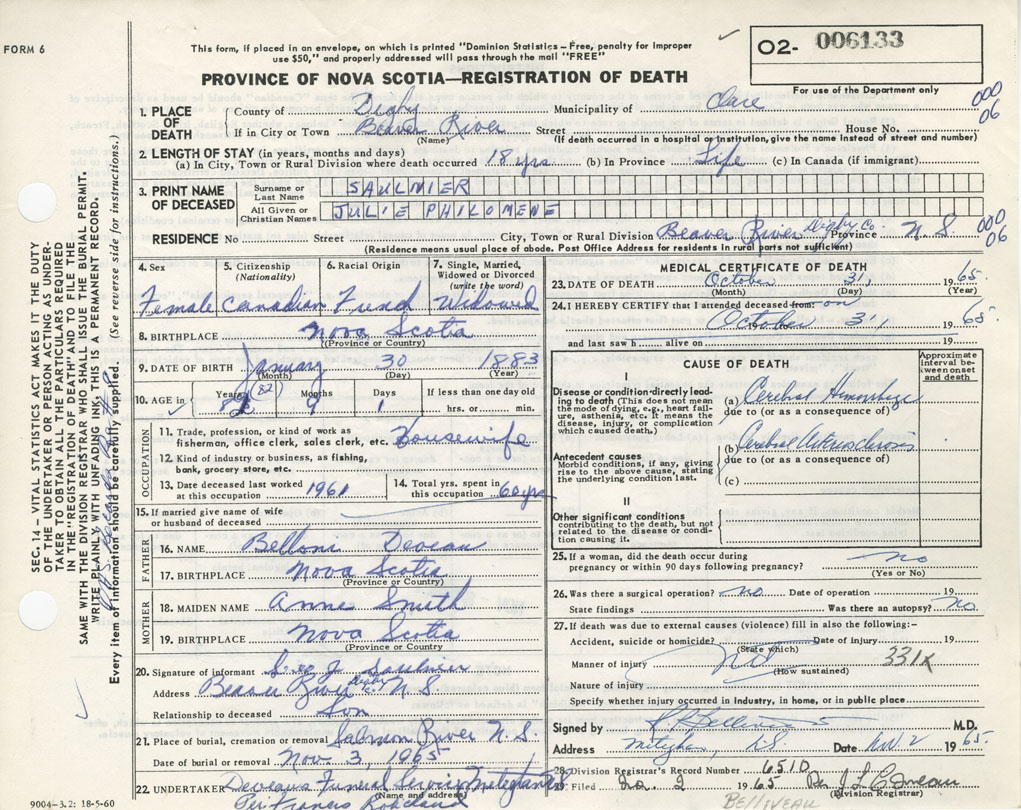 FORM 6
This form, if placed in an envelope, on which is printed "Dominion Statistics – Free, penalty for improper
use $50," and properly addressed will pass through the mail "FREE"
O2- 006133
For use of the Department only
PROVINCE OF NOVA SCOTIA—REGISTRATION OF DEATH
1. PLACE OF DEATH
County of Digby Municipality of Clare
If in City or Town Beaver River Street House No.
(Name) (If death occurred in a hospital or institution, give the name instead of street and number)
000
06
2. LENGTH OF STAY (in years, months and days)
(a) In City, Town or Rural Division where death occurred 18 yrs (b) In Province Life (c) In Canada (if immigrant)
3. PRINT NAME OF DECEASED
Surname or Last Name SAULNIER
All Given or Christian Names JULIE PHILOMENE
RESIDENCE No Street City, Town or Rural Division Beaver River Digby Co. Province N. S.
(Residence means usual place of abode. Post Office Address for residents in rural parts not sufficient)
000
06
4. Sex Female
5. Citizenship (Nationality) Canadian
6. Racial Origin French
7. Single, Married, Widowed or Divorced (write the word) Widowed
8. BIRTHPLACE Nova Scotia
(Province or Country)
9. DATE OF BIRTH January 30 1883
(Month) (Day) (Year)
10. AGE in Years (82) Months 9 Days 1 If less than one day old hrs. or min.
OCCUPATION
11. Trade, profession, or kind of work as fisherman, office clerk, sales clerk, etc. Housewife
12. Kind of industry or business, as fishing, bank, grocery store, etc.
13. Date deceased last worked at this occupation 1961
14. Total yrs. spent in this occupation 60 yrs
15. If married give name of wife or husband of deceased
FATHER
16. NAME Belloni Deveau
17. BIRTHPLACE Nova Scotia
(Province or Country)
MOTHER
18. MAIDEN NAME Anne Smith
19. BIRTHPLACE Nova Scotia
(Province or Country
20. Signature of informant J. Saulnier
Address Beaver River Digby Co. N. S.
Relationship to deceased Son
21. Place of burial, cremation or removal Salmon River N. S.
Date of burial or removal Nov 3, 1965
22. UNDERTAKER Deveau's Funeral Service Meteghan N S
(Name and address)
Per Francis Robichaud
9004-3.2: 18-5-60
MEDICAL CERTIFICATE OF DEATH
23. DATE OF DEATH October 31, 1965
(Month) (Day) (Year)
24. I HEREBY CERTIFY that I attended deceased from: on
October 31, 1965.
19
and last saw h alive on 19
CAUSE OF DEATH
Approximate interval between onset and death
I
Disease or condition directly leading to death (This does not mean the mode of dying, e.g., heart failure, asthenia, etc. It means the disease, injury, or complication which caused death.)
(a) Cerebral Hemorrhage
due to (or as a consequence of)
Antecedent causes
Morbid conditions, if any, giving rise to the above cause, stating the underlying condition last.
(b) Cerebral Arteriosclerosis
due to (or as a consequence of)
(c)
II
Other significant conditions
contributing to the death, but not related to the disease or condition causing it.
25. If a woman, did the death occur during pregnancy or within 90 days following pregnancy? no
(Yes or No)
26. Was there a surgical operation? no Date of operation 19
State findings Was there an autopsy? no
27. If death was due to external causes (violence) fill in also the following:—
Accident, suicide or homicide? Date of injury 19
(State which)
Manner of injury no 331X
(How sustained)
Nature of injury
Specify whether injury occurred in Industry, in home, or in public place
Signed by Belliveau M.D.
Address Meteghan, N.S. Date Nov. 2 1965
28. Division Registrar's Record Number 6510
Filed No. 2 1965 Per J L Comeau
(Division Registrar)
BELLIVEAU
SEC. 14 — VITAL STATISTICS ACT MAKES IT THE DUTY
OF THE UNDERTAKER OR PERSON ACTING AS UNDER-
TAKER TO OBTAIN ALL THE PARTICULARS REQUIRED
IN THE "REGISTRATION OF DEATH" AND TO FILE THE
SAME WITH THE DIVISION REGISTRAR WHO SHALL ISSUE THE BURIAL PERMIT.
WRITE PLAINLY, WITH UNFADING INK; THIS IS A PERMANENT RECORD.
Every item of information should be carefully supplied. (See reverse side for instructions.)